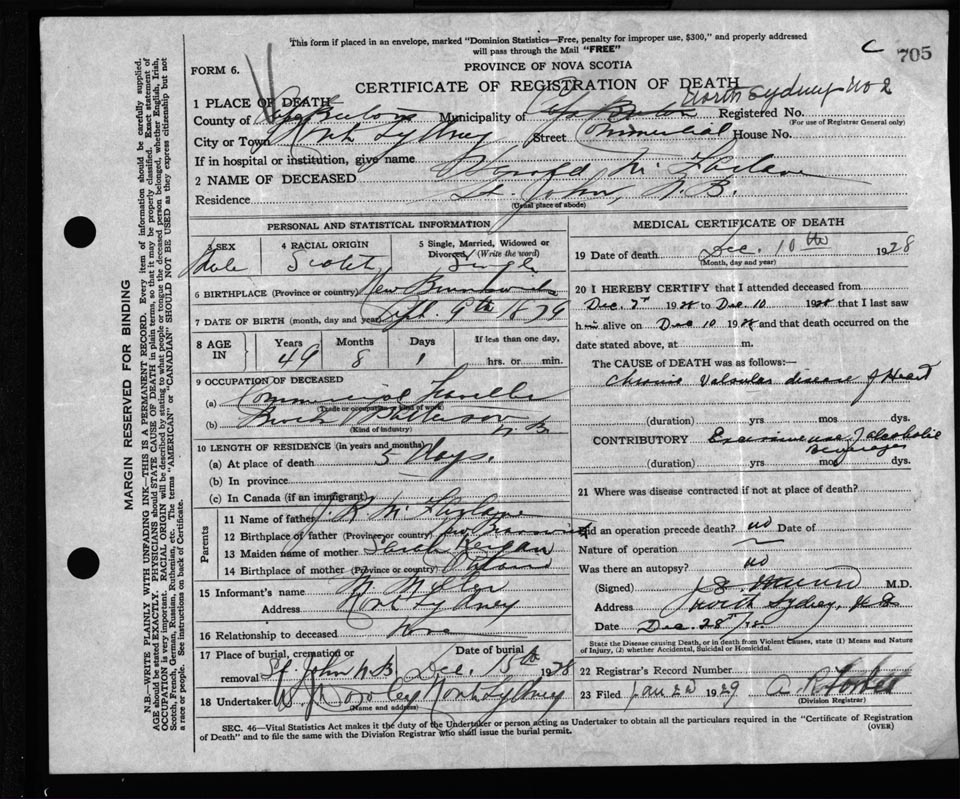 This form if placed in an envelope, marked "Dominion Statistics—Free, penalty for improper use, $300," and properly addressed
will pass through the Mail "FREE"
C 705
FORM 6.
PROVINCE OF NOVA SCOTIA
CERTIFICATE OF REGISTRATION OF DEATH
North Sydney No 2
1 PLACE OF DEATH
County of Cape Breton Municipality of Cape Breton Registered No.
(For use of Registrar General only)
City or Town North Sydney Street Commercial House No.
If in hospital or institution, give name
2 NAME OF DECEASED McFarlane
Residence St. John, N.B.
(Usual place of abode)
PERSONAL AND STATISTICAL INFORMATION
3 SEX Male
4 RACIAL ORIGIN Scotch
5 Single, Married, Widowed or Divorced (Write the word) Single
6 BIRTHPLACE (Province or country) New Brunswick
7 DATE OF BIRTH (month, day and year) Sept. 9th 1879
8 AGE IN Years 49 Months 8 Days 1 If less than one day, hrs. or min.
9 OCCUPATION OF DECEASED
(a) Commercial Traveller
(Trade or occupation or kind of work)
(b) Brock & Paterson N B
(Kind of industry)
10 LENGTH OF RESIDENCE (in years and months)
(a) At place of death 5 Days.
(b) In province
(c) In Canada (if an immigrant)
Parents
11 Name of father J. R. McFarlane
12 Birthplace of father (Province or country) New Brunswick
13 Maiden name of mother Sarah
14 Birthplace of mother (Province or country)
15 Informant's name M Miller
Address North Sydney
16 Relationship to deceased None
17 Place of burial, cremation or removal St. John NB
Date of burial Dec. 15th 1928
18 Undertaker W J Dooley North Sydney
(Name and address)
MEDICAL CERTIFICATE OF DEATH
19 Date of death Dec. 10th 1928
(Month, day and year)
20 I HEREBY CERTIFY that I attended deceased from
Dec. 7th 1928 to Dec 10 1928 that I last saw
him alive on Dec 10 1928 and that death occurred on the
date stated above, at m.
The CAUSE OF DEATH was as follows:—
Chronic Valvular disease of Heart
(duration) yrs mos dys.
CONTRIBUTORY Excessive use of alcoholic
Beverages
(duration) yrs mos dys.
21 Where was disease contracted if not at place of death?
Did an operation precede death? no Date of
Nature of operation
Was there an autopsy? no
(Signed) M.D.
Address North Sydney, N S
Date Dec. 28th
State the Disease causing Death, or in death from Violent Causes, state (1) Means and Nature
of Injury, (2) whether Accidental, Suicidal or Homicidal.
22 Registrar's Record Number
23 Filed Jan 22 1929 A R Forbes
(Division Registrar)
SEC. 46—Vital Statistics Act makes it the duty of the Undertaker or person acting as Undertaker to obtain all the particulars required in the "Certificate of Registration
of Death" and to file the same with the Division Registrar who shall issue the burial permit.
(OVER)
MARGIN RESERVED FOR BINDING
N.B.—WRITE PLAINLY WITH UNFADING INK—THIS IS A PERMANENT RECORD. Every item of information should be carefully supplied.
AGE should be stated EXACTLY. PHYSICIANS should STATE CAUSE OF DEATH in plain terms, so that it may be properly classified. Exact statement of
OCCUPATION is very important. RACIAL ORIGIN will be described by stating to what people or tongue the deceased person belonged, whether English, Irish,
Scotch, French, German, Russian, Ruthenian, etc. The terms "AMERICAN" or "CANADIAN" SHOULD NOT BE USED as they express citizenship but not
a race or people. See instructions on back of Certificate.